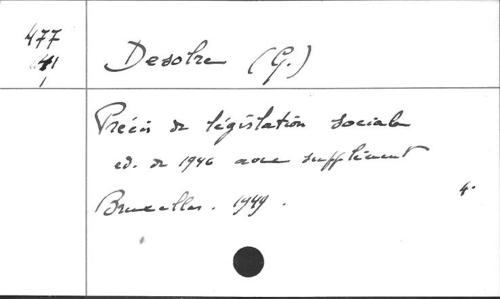 477
41
1
Desolre (G.)
Précis de législation sociale
ed. de 1946 avec supplément
Bruxelles. 1949.
4.